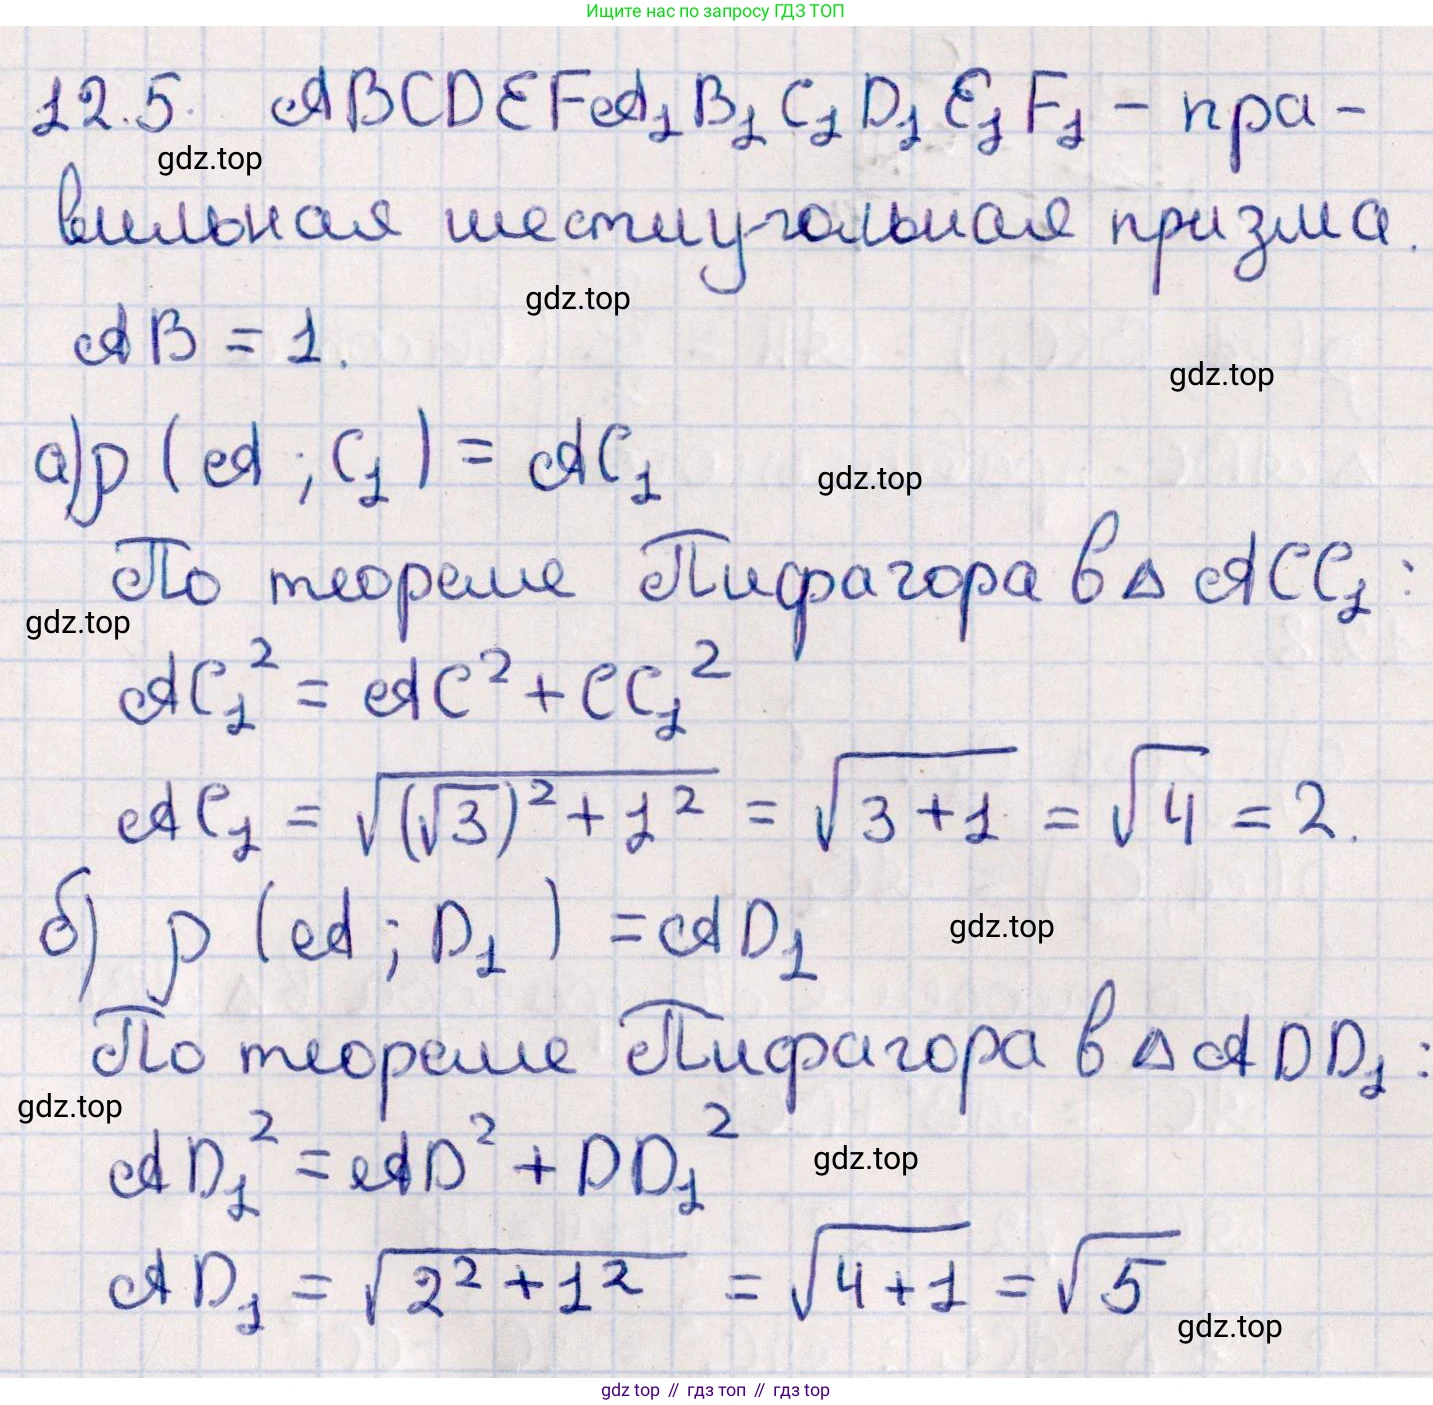 Ищите нас по запросу ГДЗ ТОП
12.5. ABCDEFA₁B₁C₁D₁E₁F₁ – пра-
gdz.top
вильная шестиугольная призма.
gdz.top
AB = 1.
gdz.top
а) ρ (A ; C₁) = AC₁
gdz.top
По теореме Пифагора в △ ACC₁ :
gdz.top
AC₁² = AC² + CC₁²
AC₁ = √((√3)² + 1²) = √(3 + 1) = √4 = 2.
б) ρ (A ; D₁) = AD₁
gdz.top
По теореме Пифагора в △ ADD₁ :
gdz.top
AD₁² = AD² + DD₁²
gdz.top
AD₁ = √(2² + 1²) = √(4 + 1) = √5
gdz.top
gdz top // гдз топ // gdz.top